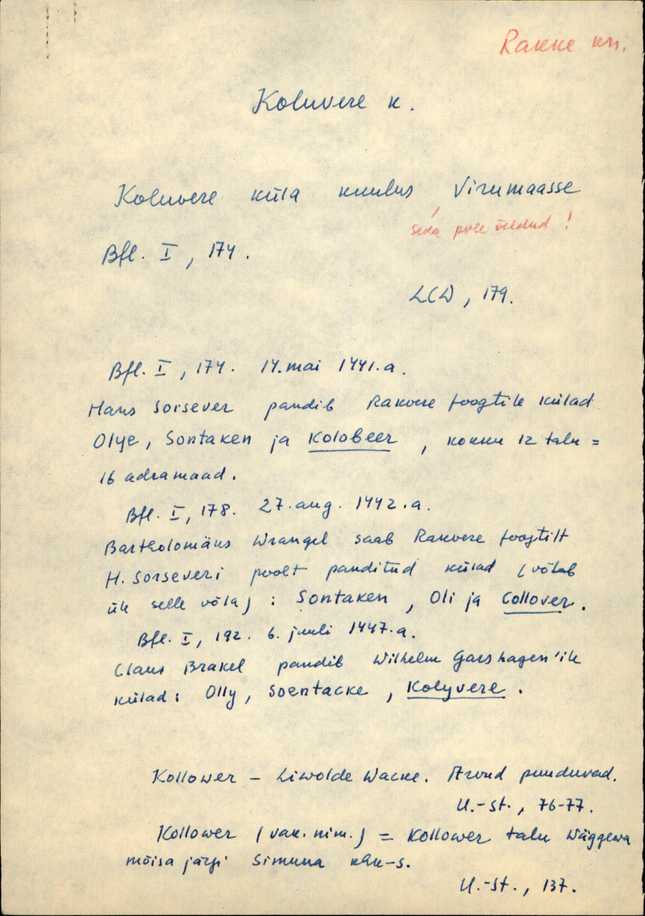 Rakke kn.
Koluvere k.
Koluvere küla kuulus, Virumaasse
seda pole öeldud!
Bfl. I, 174.
LCD, 179.
Bfl. I, 174. 14. mai 1441.a.
Hans Sorsever pandib Rakvere foogtile külad
Olye, Sontaken ja Kolobeer, kokku 12 talu =
16 adramaad.
Bfl. I, 178. 27. aug. 1442.a.
Bartholomäus Wrangel saab Rakvere foogtilt
H. Sorseveri poolt panditud külad (võtab
üle selle võla): Sontaken, Oli ja Collover.
Bfl. I, 192. 6. juuli 1447.a.
Claus Brakel pandib Wilhelm Garshagen'ile
külad: Olly, Soentacke, Kolyvere.
Kollower – Liwolde Wacke. Arvud puuduvad.
U.-st., 76-77.
Kollower (vak. nim.) = Kollower talu Wäggewa
mõisa järgi Simuna khk-s.
U.-st., 137.